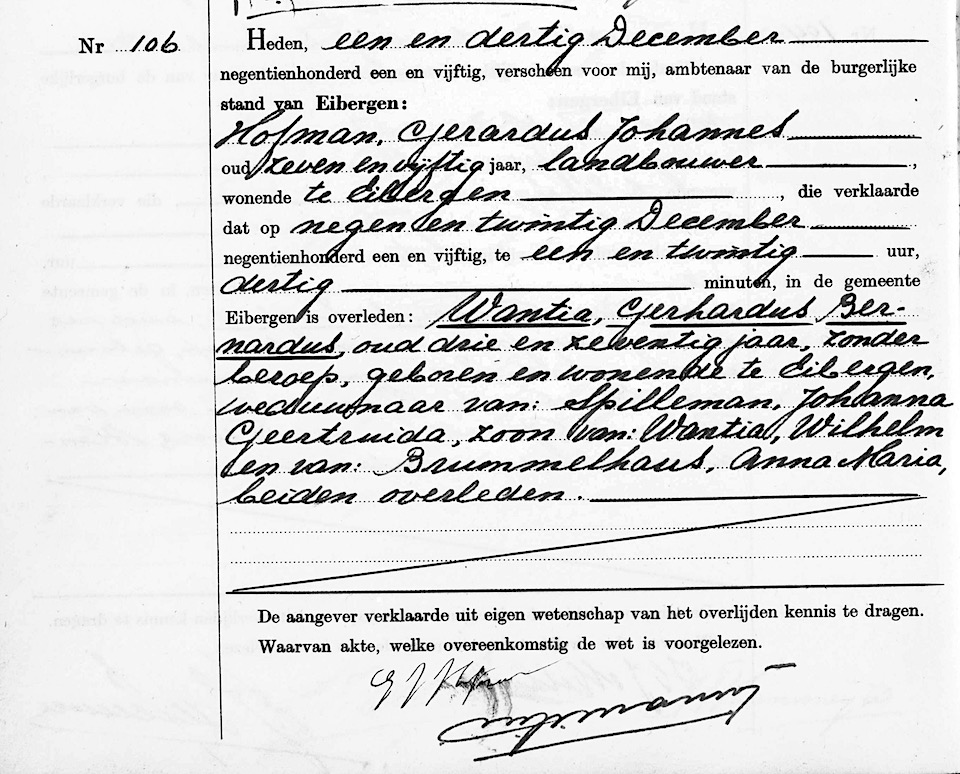 Nr 106
Heden, een en dertig December
negentienhonderd een en vijftig, verscheen voor mij, ambtenaar van de burgerlijke
stand van Eibergen:
Hofman, Gerardus Johannes
oud zeven en vijftig jaar, landbouwer ,
wonende te Eibergen , die verklaarde
dat op negen en twintig December
negentienhonderd een en vijftig, te een en twintig uur,
dertig minuten, in de gemeente
Eibergen is overleden: Wantia, Gerhardus Ber-
nardus, oud drie en zeventig jaar, zonder
beroep, geboren en wonende te Eibergen,
weduwnaar van: Spilleman, Johanna
Geertruida, zoon van: Wantia, Wilhelm
en van: Brummelhaus, Anna Maria,
beiden overleden.
De aangever verklaarde uit eigen wetenschap van het overlijden kennis te dragen.
Waarvan akte, welke overeenkomstig de wet is voorgelezen.